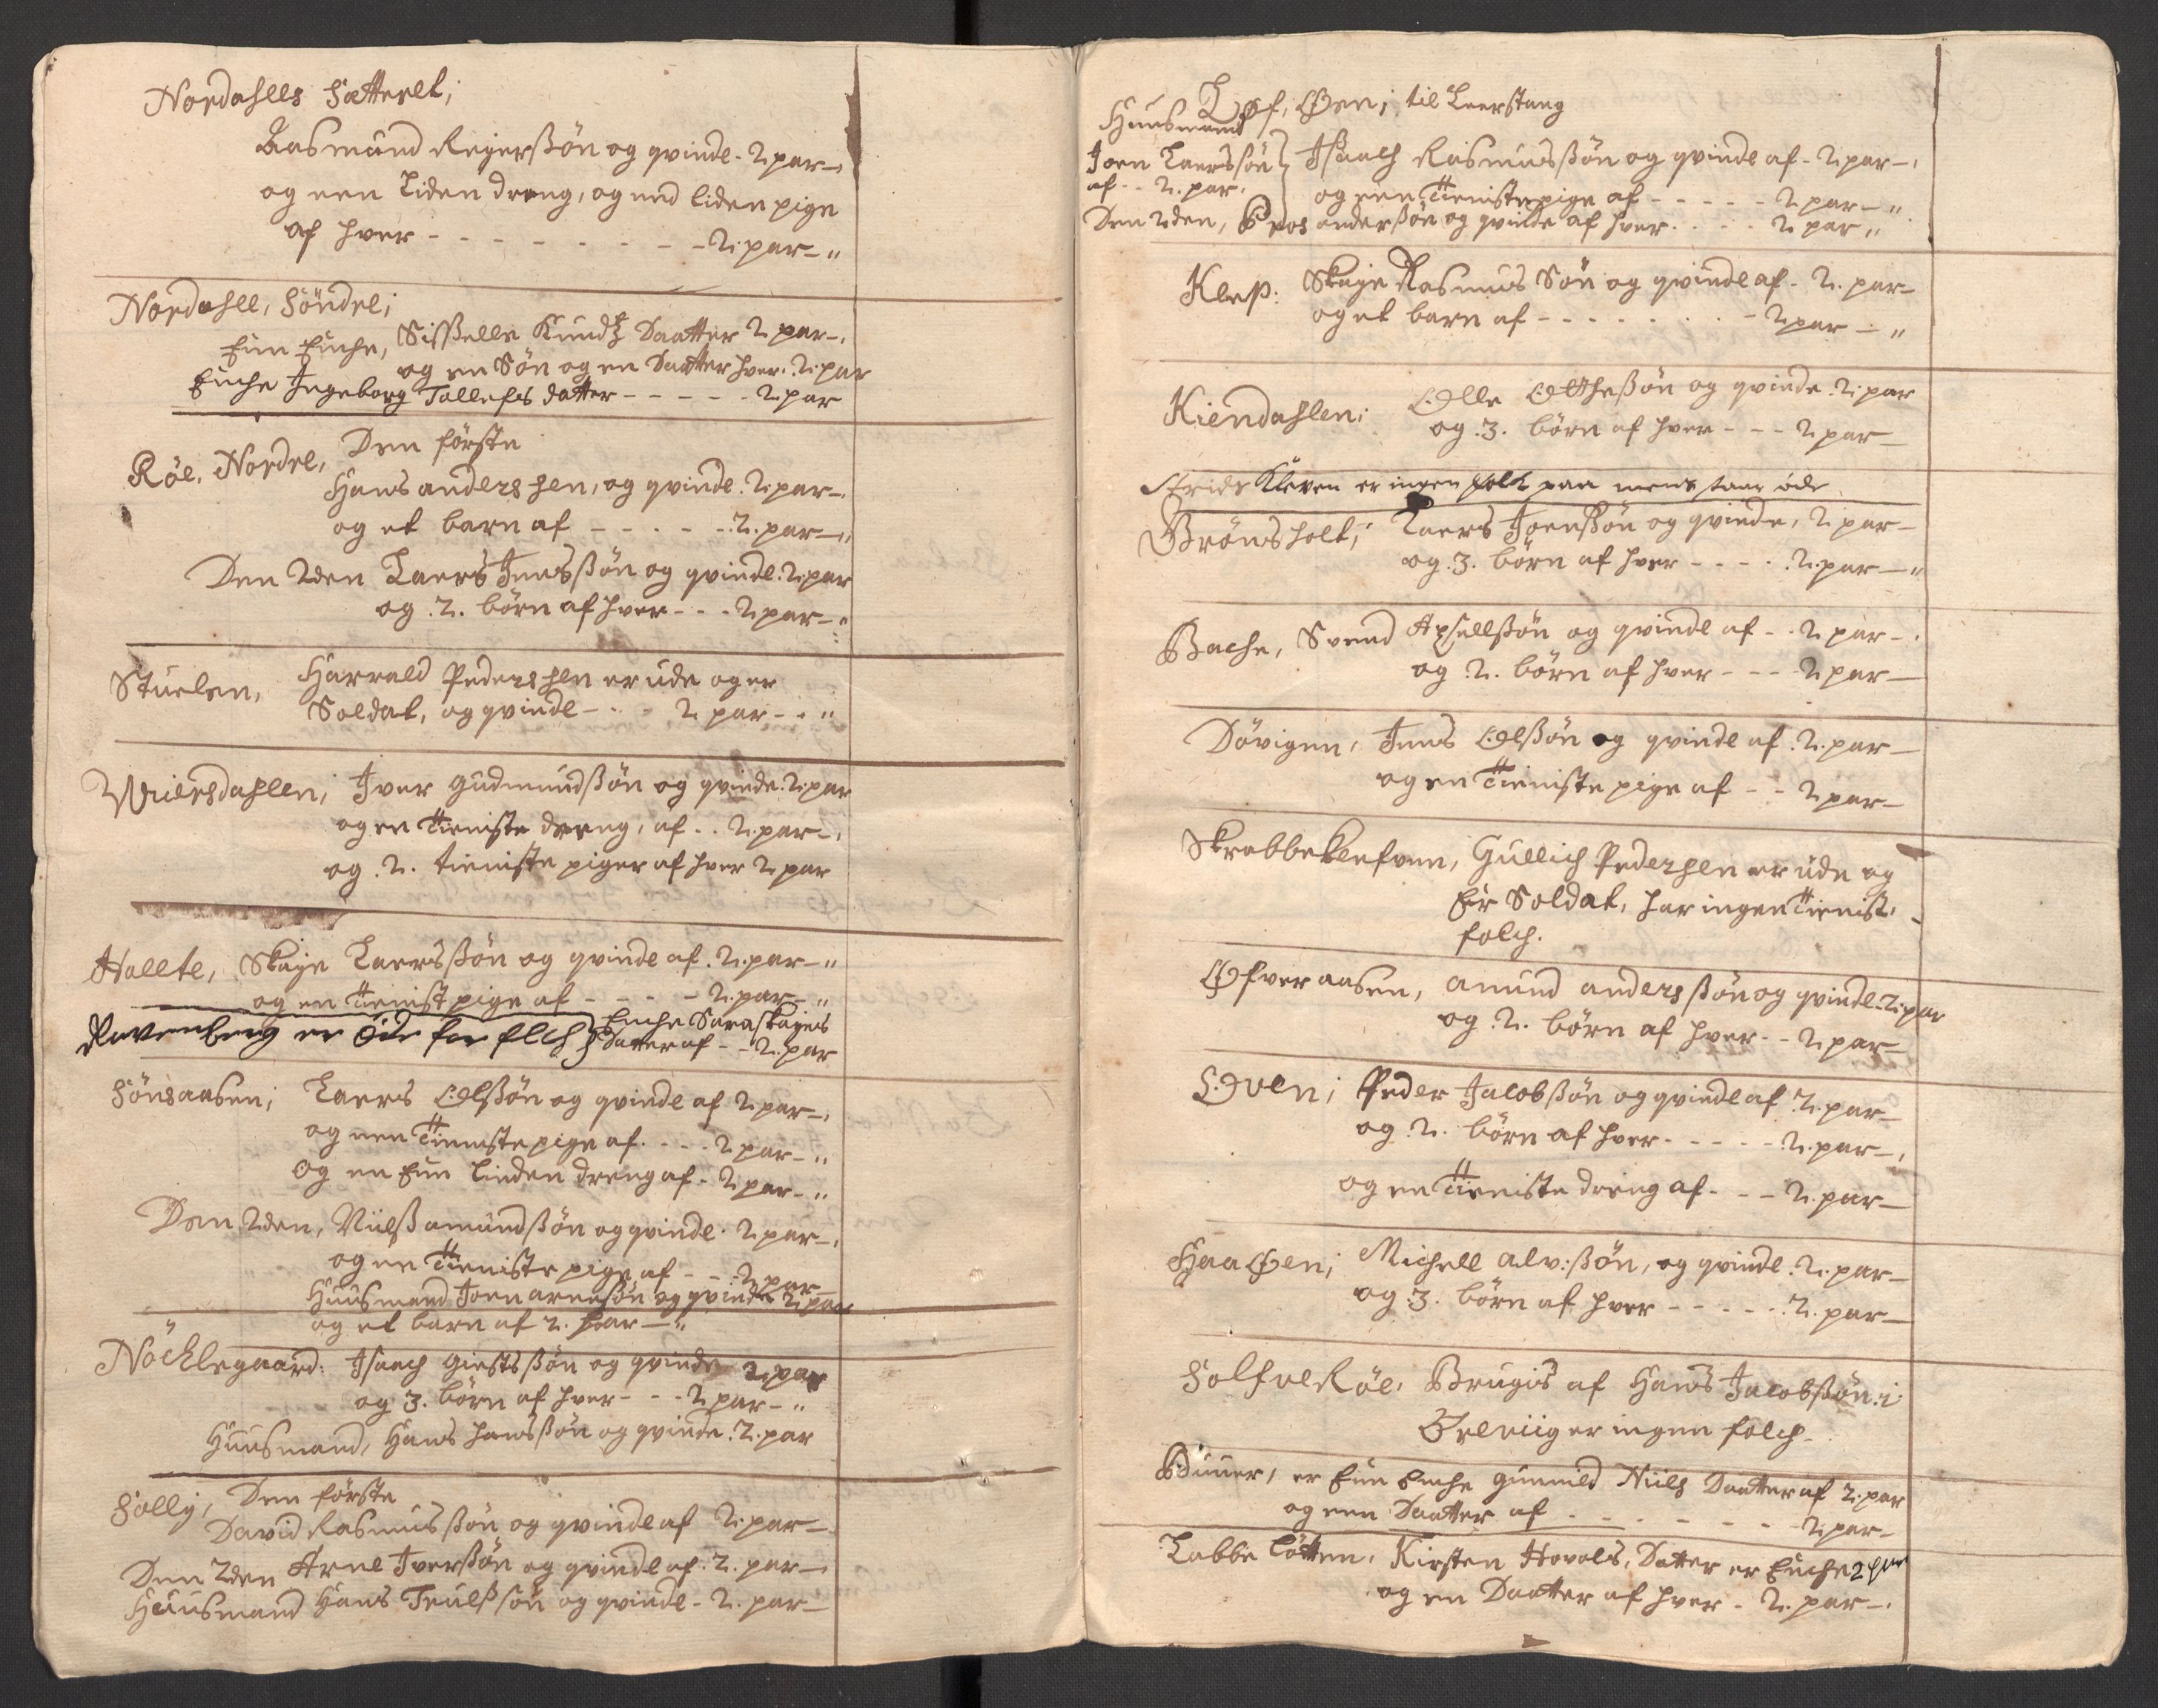 Nordahls Sætteret;
Aasmund Reyerssön og qvinde. 2 par
og een Liden dreng, og end liden pige
af hver - - - - - 2 par
Nordahll, Söndre;
Een Enche, Sisselle Knudtz Daatter 2 par
og en Sön og en Daatter hver. 2 par
Enche Ingeborg Tollefs datter - - - - 2 par
Röe, Nordre, Den förste
Hans andershen, og qvinde. 2 par
og et barn af - - - - 2. par
Den 2den Laers Jenssön og qvinde. 2 par
og .2. börn af hver - - 2 par
Stuelen, Harrald Pedershen er ude og er
Soldat, og qvinde - - 2 par
Wiersdahlen; Iver Gudmundssön og qvinde. 2 par
og en Tieniste dreng, af . . 2. par
og .2. tieniste piger af hver 2 par
Hallte, Skaje Laerssön og qvinde af . 2. par
og en Tienist pige af - - - - 2. par
Ravenberg er öde for Elch Enche Sara Skajes
Datter af - - 2. par
Sönsaasen; Laers Olssön og qvinde af 2 par
og een Tieniste pige af. - - - 2 par
Og en Een Linden dreng af - 2 par
Den 2den, Niilss amundssön og qvinde. 2 par
og en Tieniste pige af - - 2 par
Huusmand Joen arnessön og qvinde 2 par
og et barn af 2. par
Nöchlegaard: Isaach Giestssön og qvinde 2 par
og 3. börn af hver - - - 2 par
Huusmand, Hans Hanssön og qvinde. 2. par
Solly, Den förste
David Rasmussön og qvinde af 2. par
Den 2den Arne Iverssön og qvinde af. 2. par
Huusmand Hans Truelssön og qvinde - 2. par
Löf, Øen; til Leerstang
Huusmand
Joen Laerssön
af - - 2. par.
Isaach Rasmussön og qvinde af - 2 par
og een Tieniste pige af - - - - - 2 par
Den 2den, Bros anderssön og qvinde af hver. - - - 2 par
Klep: Skaje Rasmus Sön og qvinde af - 2. par
og et barn af - - - - - - 2 par
Kiendahlen; Olle Otthessön og qvinde . 2. par
og .3. börn af hver - - - 2 par
Strids Kleven er ingen folk paa mens staar öde
Brönsholt; Laers Joenssön og qvinde, 2 par
og .3. börn af hver - - - - 2. par
Bache, Svend Axsellssön og qvinde af - . 2 par
og .2. börn af hver - - - 2 par
Dövigen, Jens Olssön og qvinde af . 2. par
og en Tieniste pige af - - 2 par
Skrabbeklefven, Gullich Pedershen er ude og
Er Soldat, har ingen Tienist
folch.
Øfveraasen, Amund anderssön og qvinde - 2 par
og .2. börn af hver - - 2 par
Oven; Peder Jacobssön og qvinde af .2. par
og .2. börn af hver - - - - - 2. par
og en Tieniste dreng af - - - 2. par
Haa Øen; Michell alv:ssön, og qvinde. 2. par
og .3. börn af hver - - - - - .2. par
Solfve Röe, Brugis af Hans Jacobssön: i
Ørlviig er ingen folch
Bunner, er Een Enche Gunnild Niils Daatter af 2. par
og een Daatter af - - - - - - 2 par
Labbe Løtten, Kirsten Hovols, Datter er Enche 2 par
og en Daatter af hver - 2. par